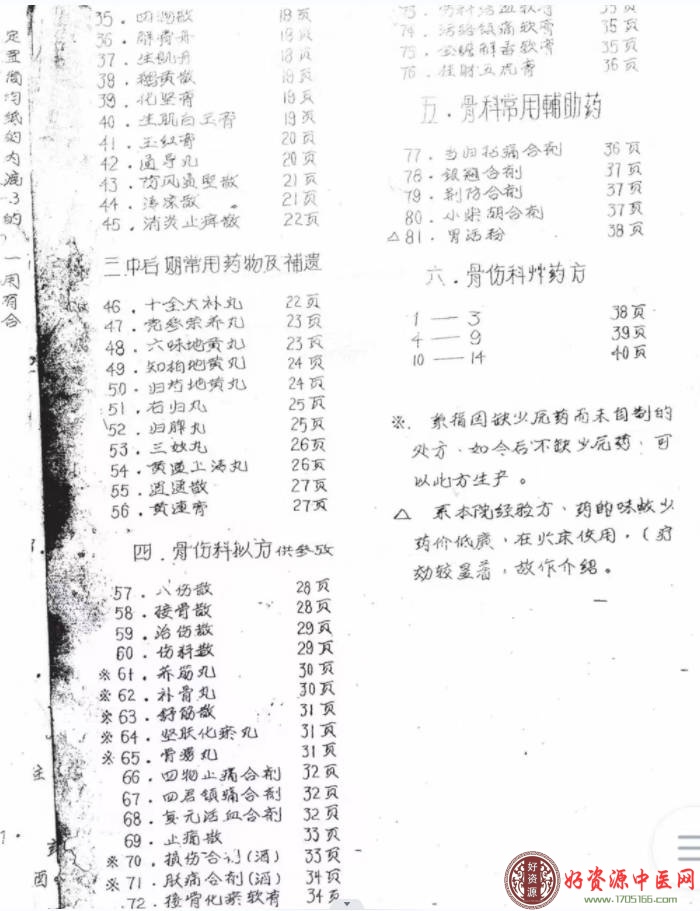 35．四物散 18页
36．解骨丹 18页
37．生肌丹 18页
38．鹅黄散 18页
39．化坚膏 19页
40．生肌白玉膏 19页
41．玉红膏 20页
42．通导丸 20页
43．防风通圣散 21页
44．清凉散 21页
45．消炎止痒散 22页
三.中后期常用药物及補遗
46．十全大补丸 22页
47．党参荣养丸 23页
48．六味地黄丸 23页
49．知柏地黄丸 24页
50．归芍地黄丸 24页
51．右归丸 25页
52．归脾丸 25页
53．三妙丸 26页
54．黄连上清丸 26页
55．逍遥散 27页
56．黄连膏 27页
四．骨伤科拟方供参考
57．八伤散 28页
58．接骨散 28页
59．治伤散 29页
60．伤科散 29页
※61．养筋丸 30页
※62．补骨丸 30页
※63．舒筋散 31页
※64．坚肤化瘀丸 31页
※65．骨痨丸 31页
66．四物止痛合剂 32页
67．四君镇痛合剂 32页
68．复元活血合剂 32页
69．止痛散 33页
※70．损伤合剂(酒) 33页
※71．肤痛合剂(酒) 34页
72．接骨化瘀软膏 34页
73．伤科活血软膏 35页
74．活络镇痛软膏 35页
75．解毒软膏 35页
76．五虎膏 36页
五．骨科常用輔助药
77．当归拈痛合剂 36页
78．银翘合剂 37页
79．荆防合剂 37页
80．小柴胡合剂 37页
△81．胃活粉 38页
六．骨伤科草药方
1—3 38页
4—9 39页
10—14 40页
※．系指因缺少死药而未自制的
处方．如今后不缺少死药．可
以此方生产。
△ 系本院经验方、药的味数少
药价低廉，在临床使用．(疗
效较显著，故作介绍。
定
量
简
均
纸
的
的
一
周
有
合
主
酉
好资源
好资源中医网
www.1705166.com